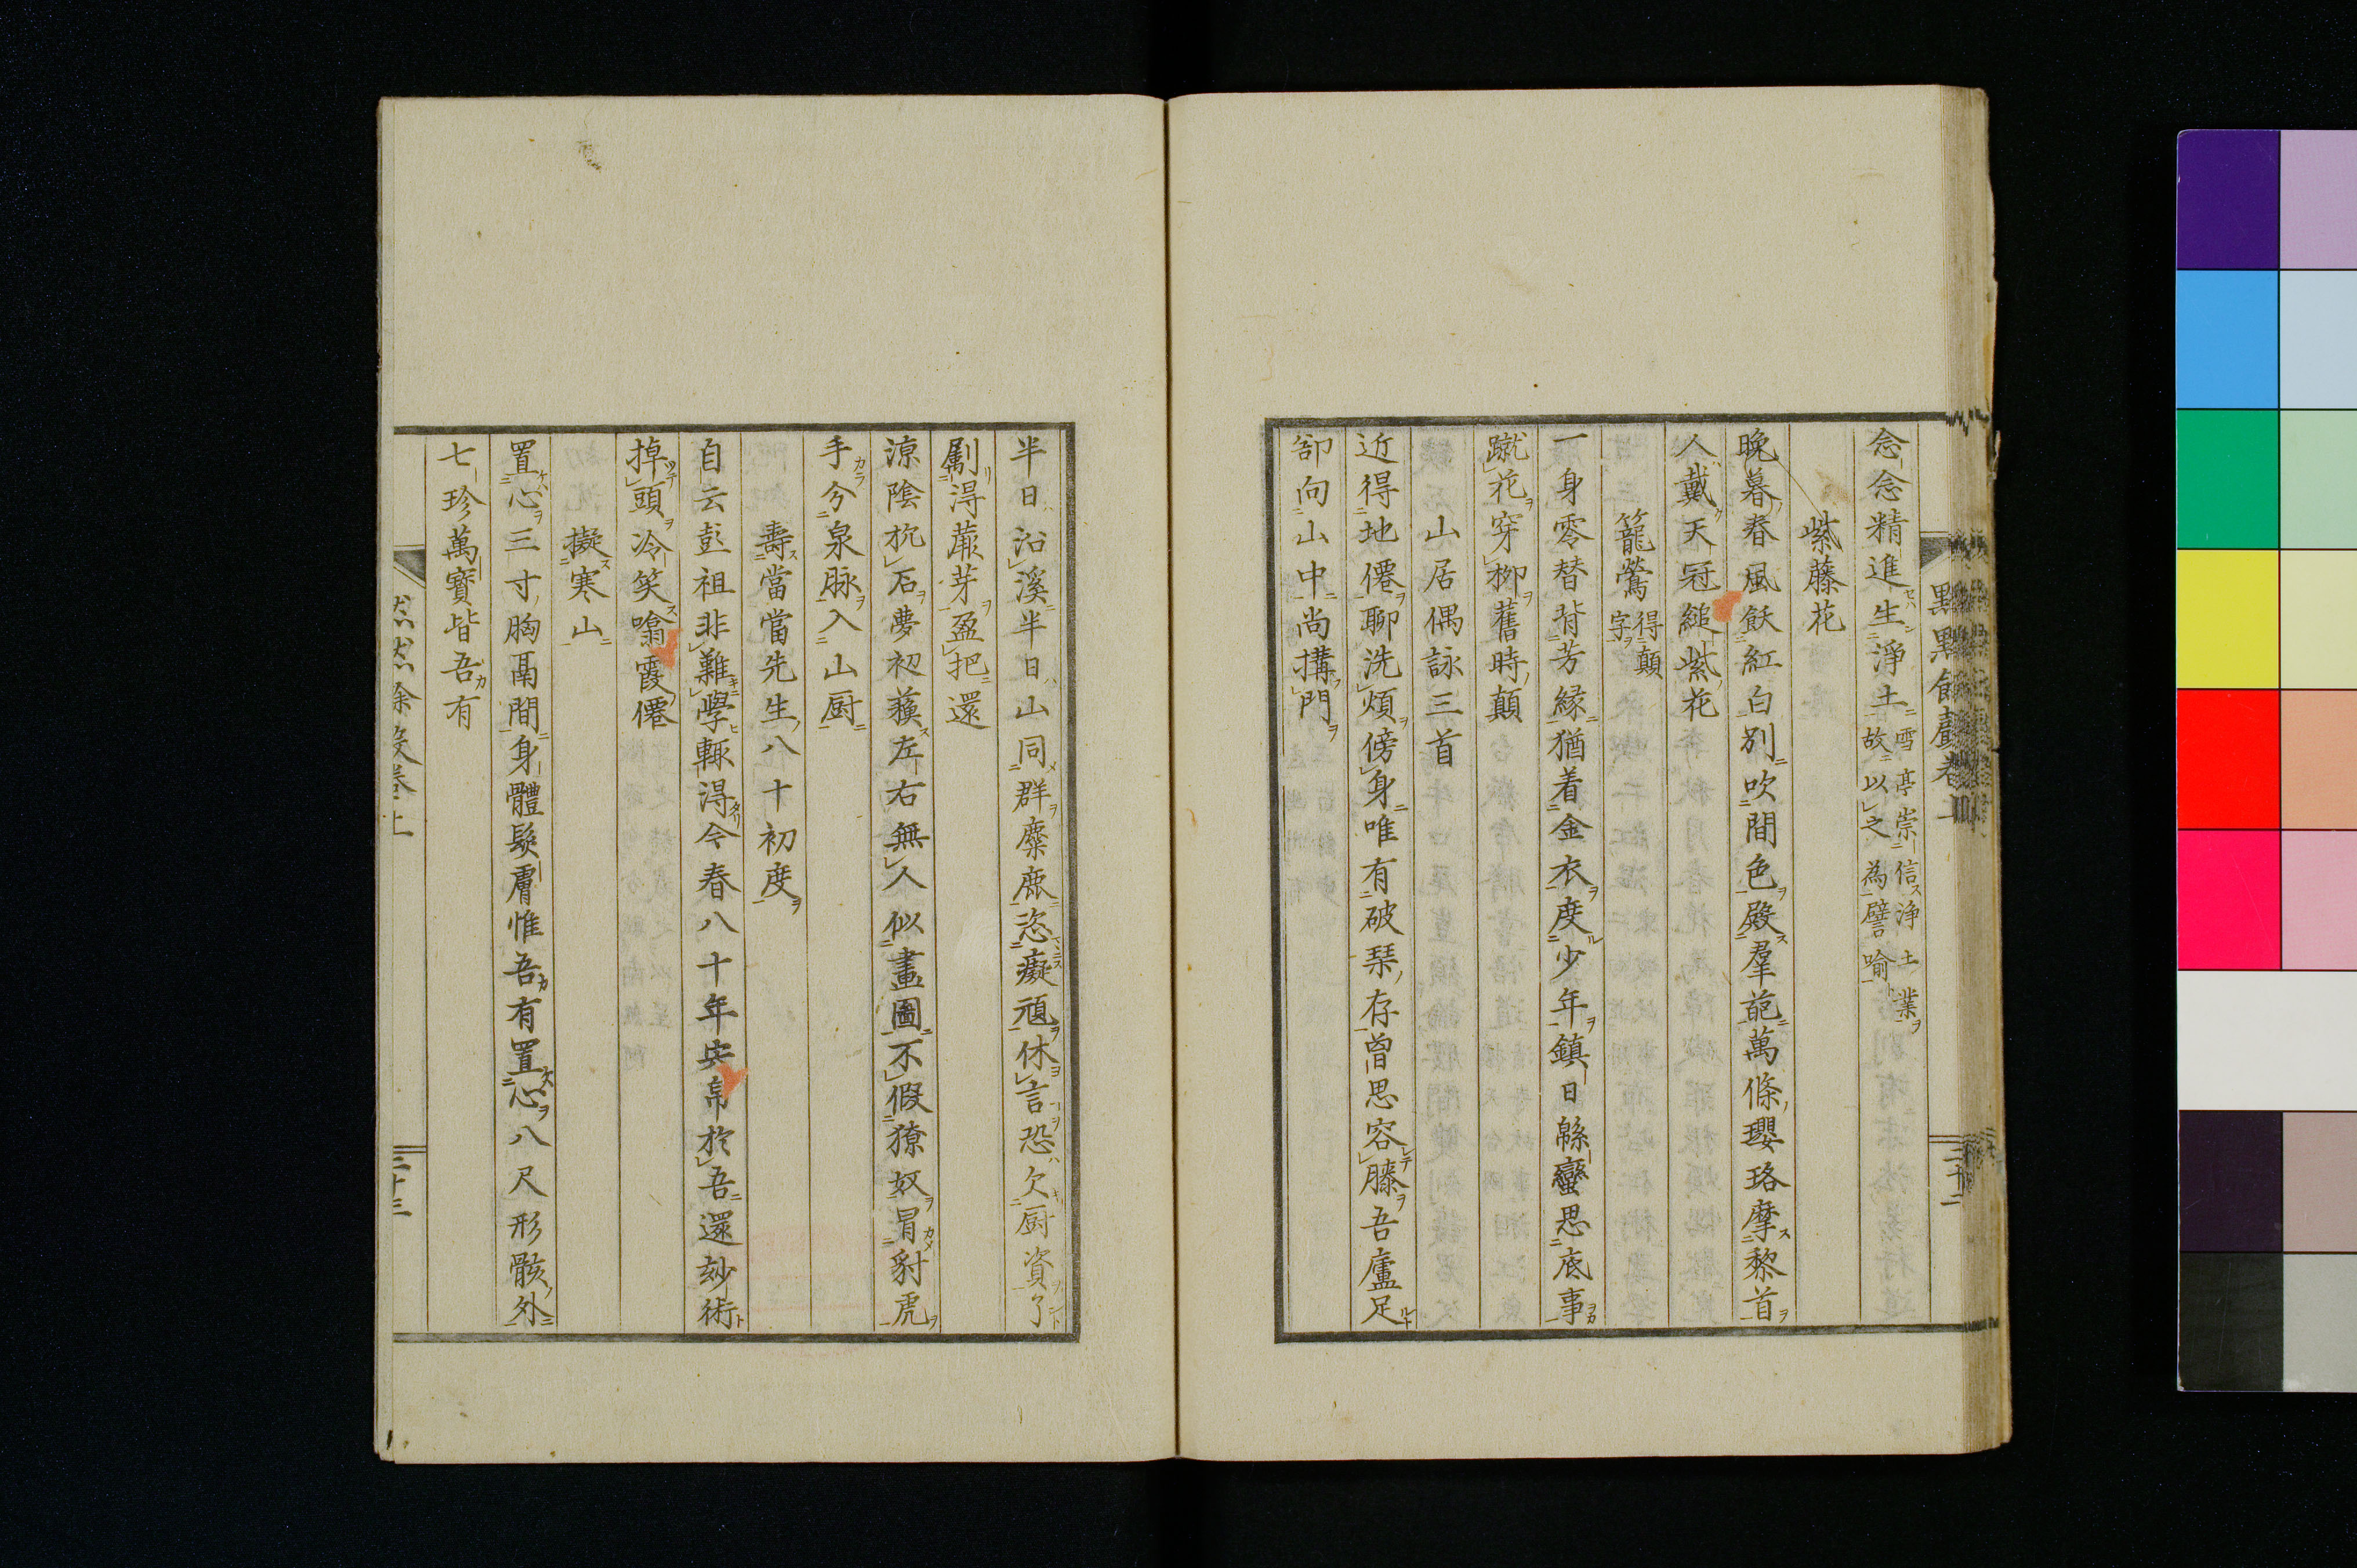 念念精進生淨土 雪亭崇信浄土業
故以之為譬喻
紫藤花
晚暮春風飫紅白別吹間色殿羣葩萬條瓔珞摩黎首
人戴天冠縋紫花
籠鶯 得顛
字
一身零替背芳縁猶着金衣度少年鎮日緜蠻思底事
蹴花穿柳舊時顛
山居偶詠三首
近得地僊聊洗煩傍身唯有破琹存曾思容膝吾廬足
卻向山中尚搆門
三十二
半日沿溪半日山同群麋鹿恣癡頑休言恐欠厨資了
劚得蕨芽盈把還
涼陰枕石夢初蘇左右無人似畫圖不假獠奴冒豺虎
手分泉脉入山厨
壽當當先生八十初度
自云彭祖非難學輒得今春八十年安帛於吾還玅術
掉頭冷笑噏霞僊
擬寒山
置心三寸胸鬲間身體髮膚惟吾有置心八尺形骸外
七珍萬寶皆吾有